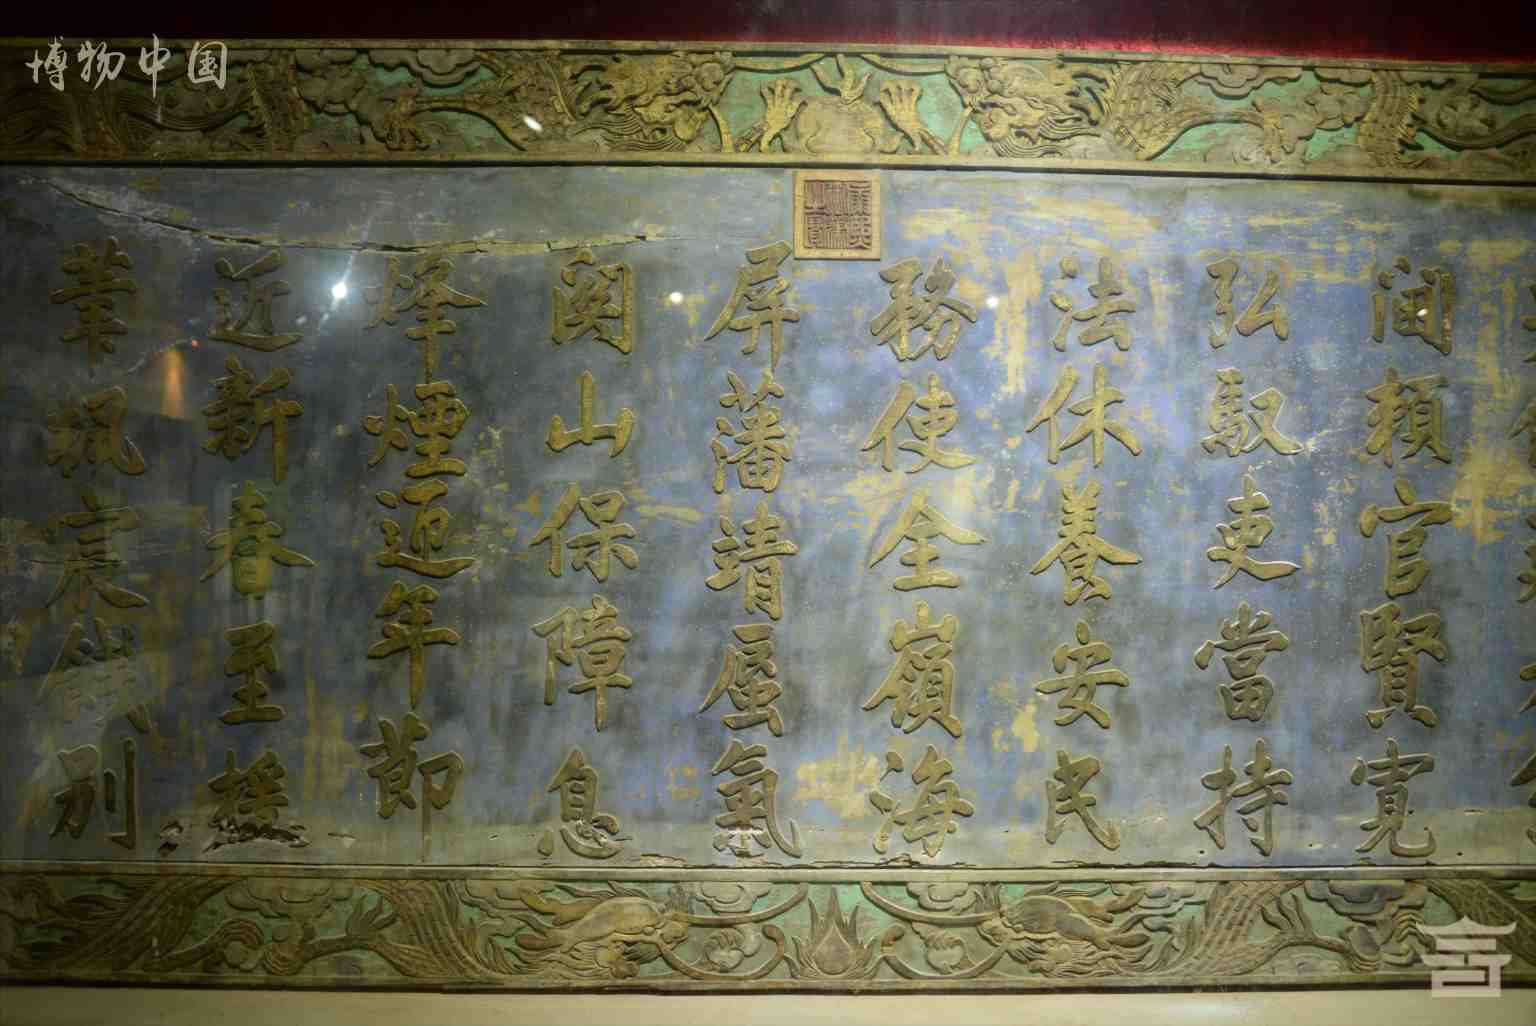 博物中国
間頼官賢寬
弘馭吏當持
法休養安民
務使全嶺海
屏藩靖蜃氣
関山保障息
烽煙迎年節
近新春至援
筆楓宸餞別